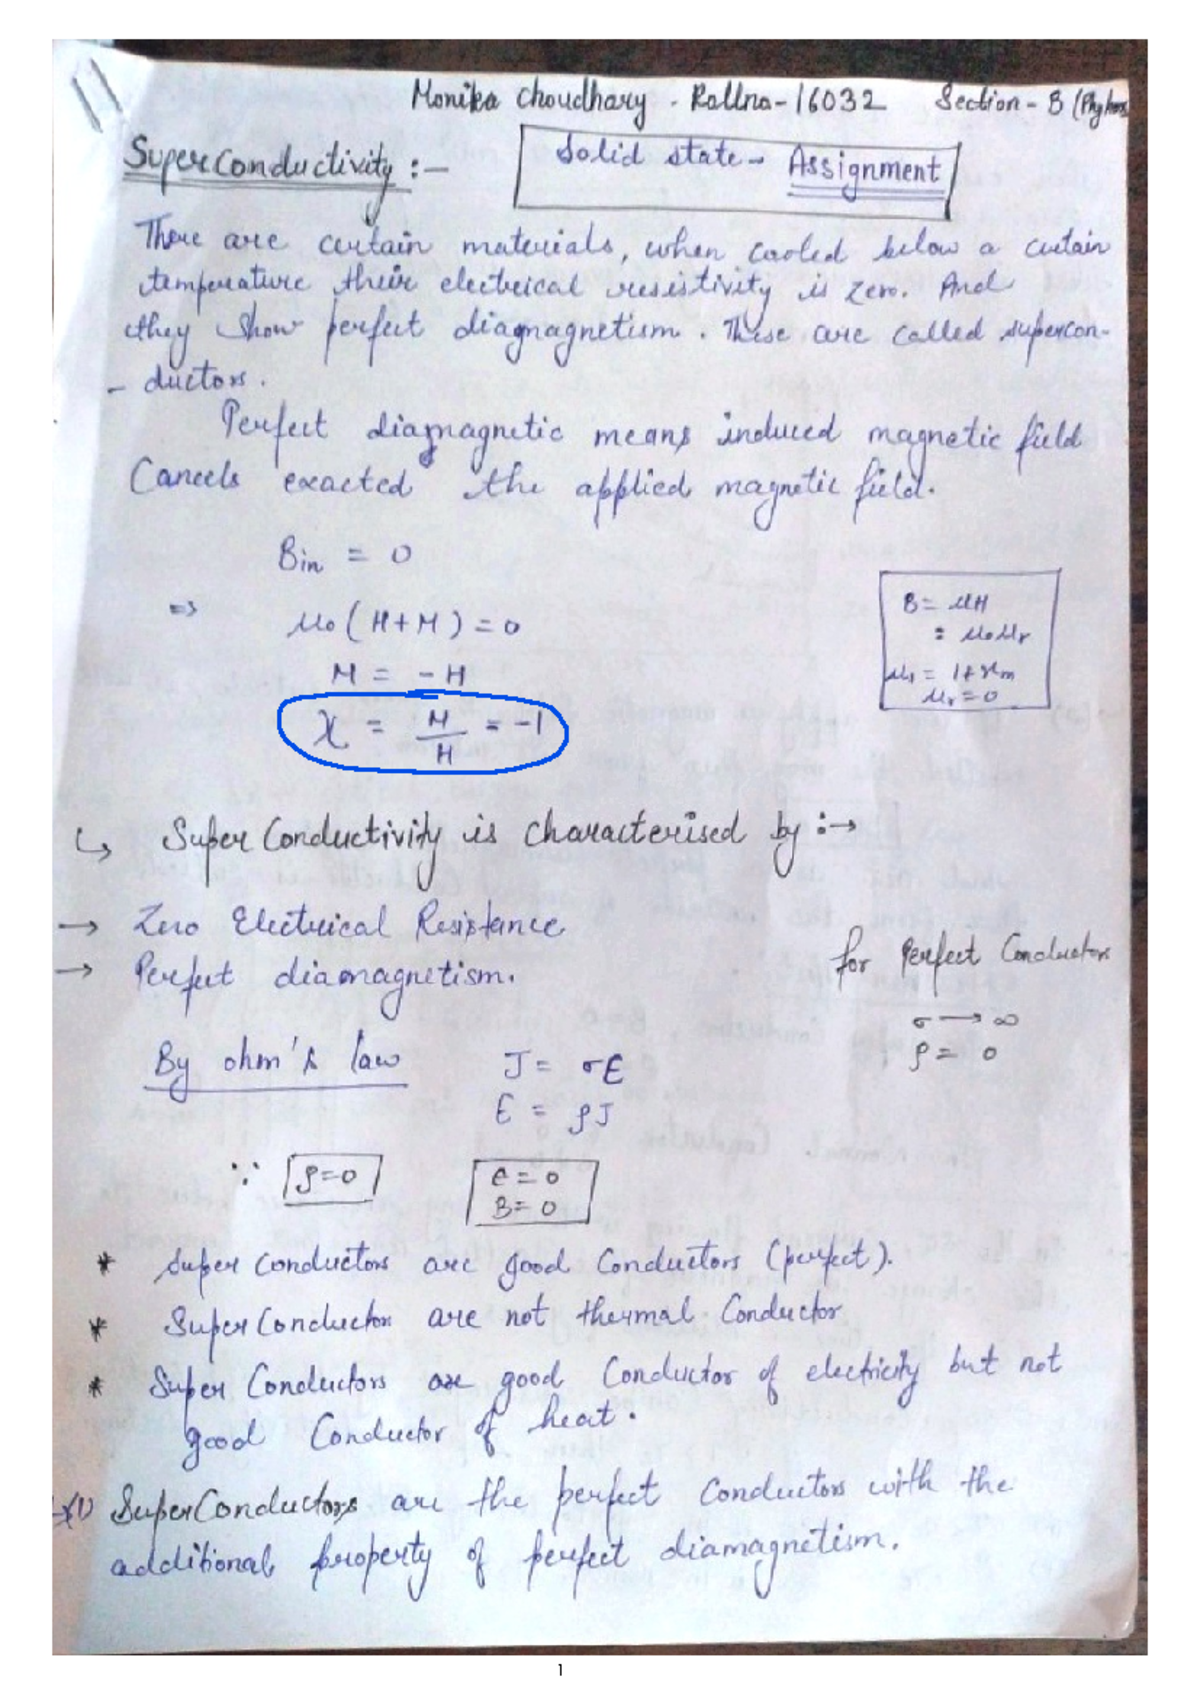 11
Monika Choudhary - Rollno-16032 Section-B
Superconductivity :-
Solid state - Assignment
There are certain materials, when cooled below a certain
temperature their electrical resistivity is zero. And
they show perfect diagmagnetism. These are called supercon-
- ductors.
Perfect diagmagnetic means induced magnetic field
Cancels exacted the applied magnetic field.
Bin = 0
=> μo(H+M) = 0
M = -H
χ = M/H = -1
B = μH
= μoμr
= 1+xm
μr = 0
↳ Super Conductivity is characterised by :→
→ Zero Electrical Resistance
→ Perfect diamagnetism.
for Perfect Conductor
σ → ∞
ρ = 0
By ohm's law
J = σE
E = ρJ
∵ ρ=0
E = 0
B = 0
* Super conductors are good Conductors (perfect).
* Super Conductor are not thermal Conductor
* Super Conductors are good Conductor of electricity but not
good Conductor of heat.
SuperConductors are the perfect Conductors with the
additional property of perfect diamagnetism.
1